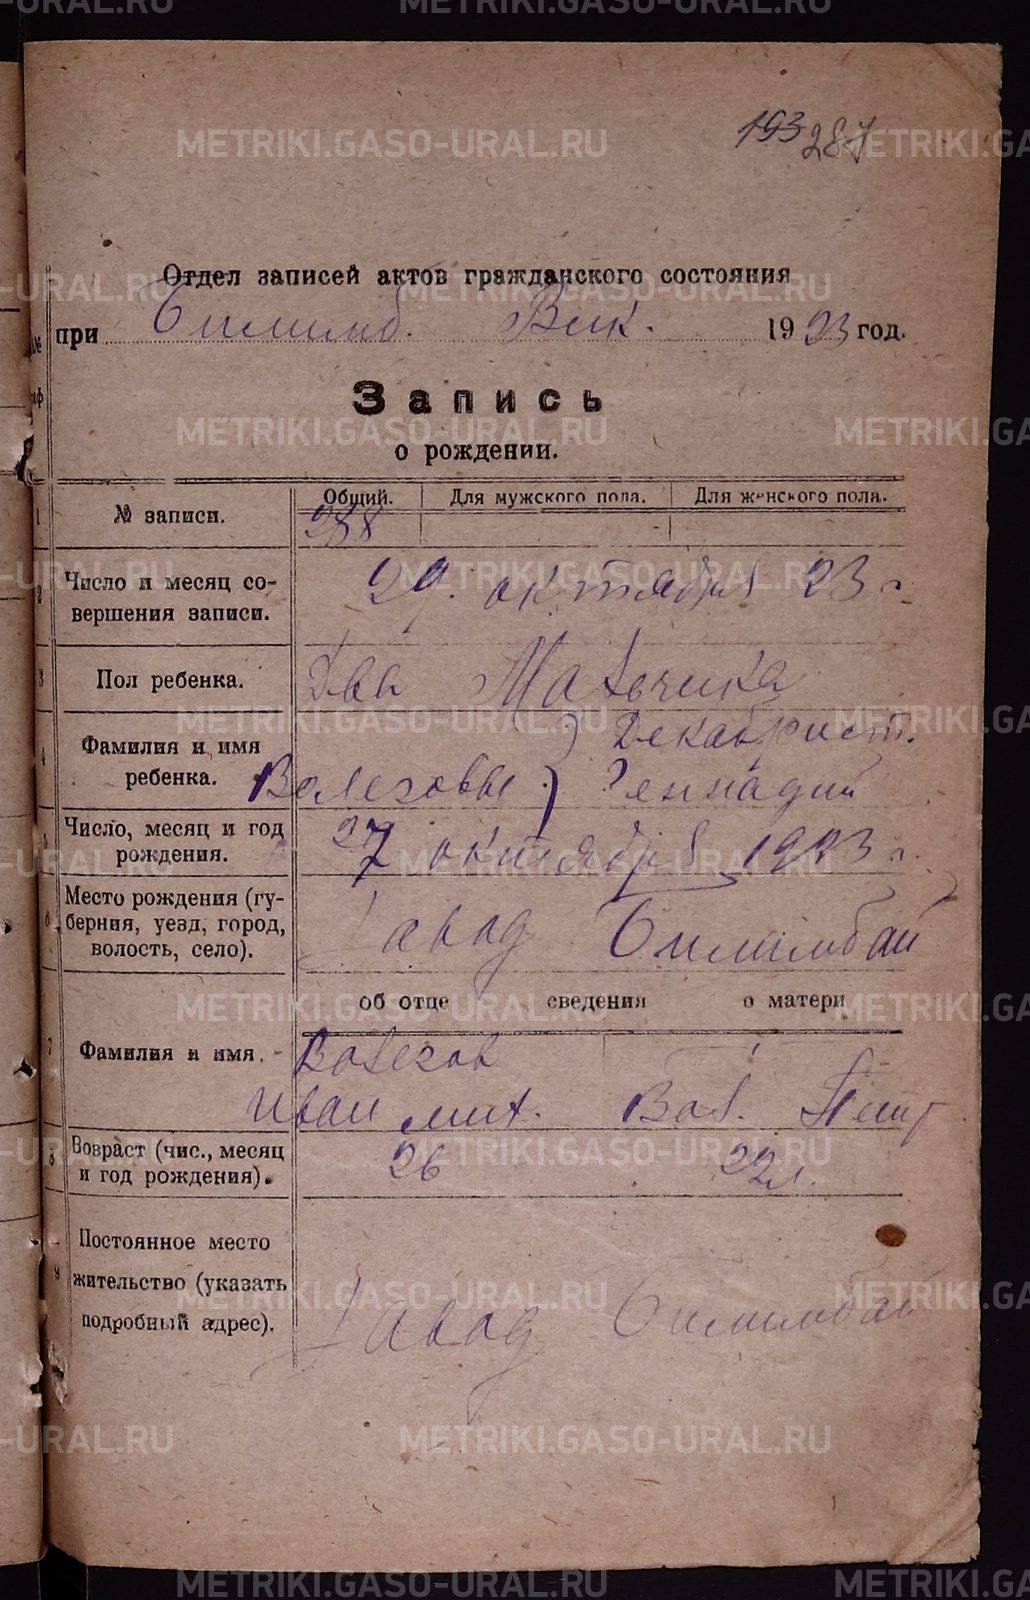 193 287
Отдел записей актов гражданского состояния
при Билимб. Вик. 1923 год.
Запись
о рождении.
№ записи.
Общий. Для мужского пола. Для женского пола.
288
Число и месяц со-
вершения записи.
29. октября 23 г
Пол ребенка.
Два Мальчика
Фамилия и имя
ребенка.
) Декабрист.
Волеговы ) Геннадий
Число, месяц и год
рождения.
27 октября 1923 г.
Место рождения (гу-
берния, уезд, город,
волость, село).
Завод Билимбай
об отце сведения о матери
Фамилия и имя.
Волегов
Иван Мих. Вол.
Возраст (чис., месяц
и год рождения).
26 22 л.
Постоянное место
жительство (указать
подробный адрес).
Завод Билимбай
METRIKI.GASO-URAL.RU